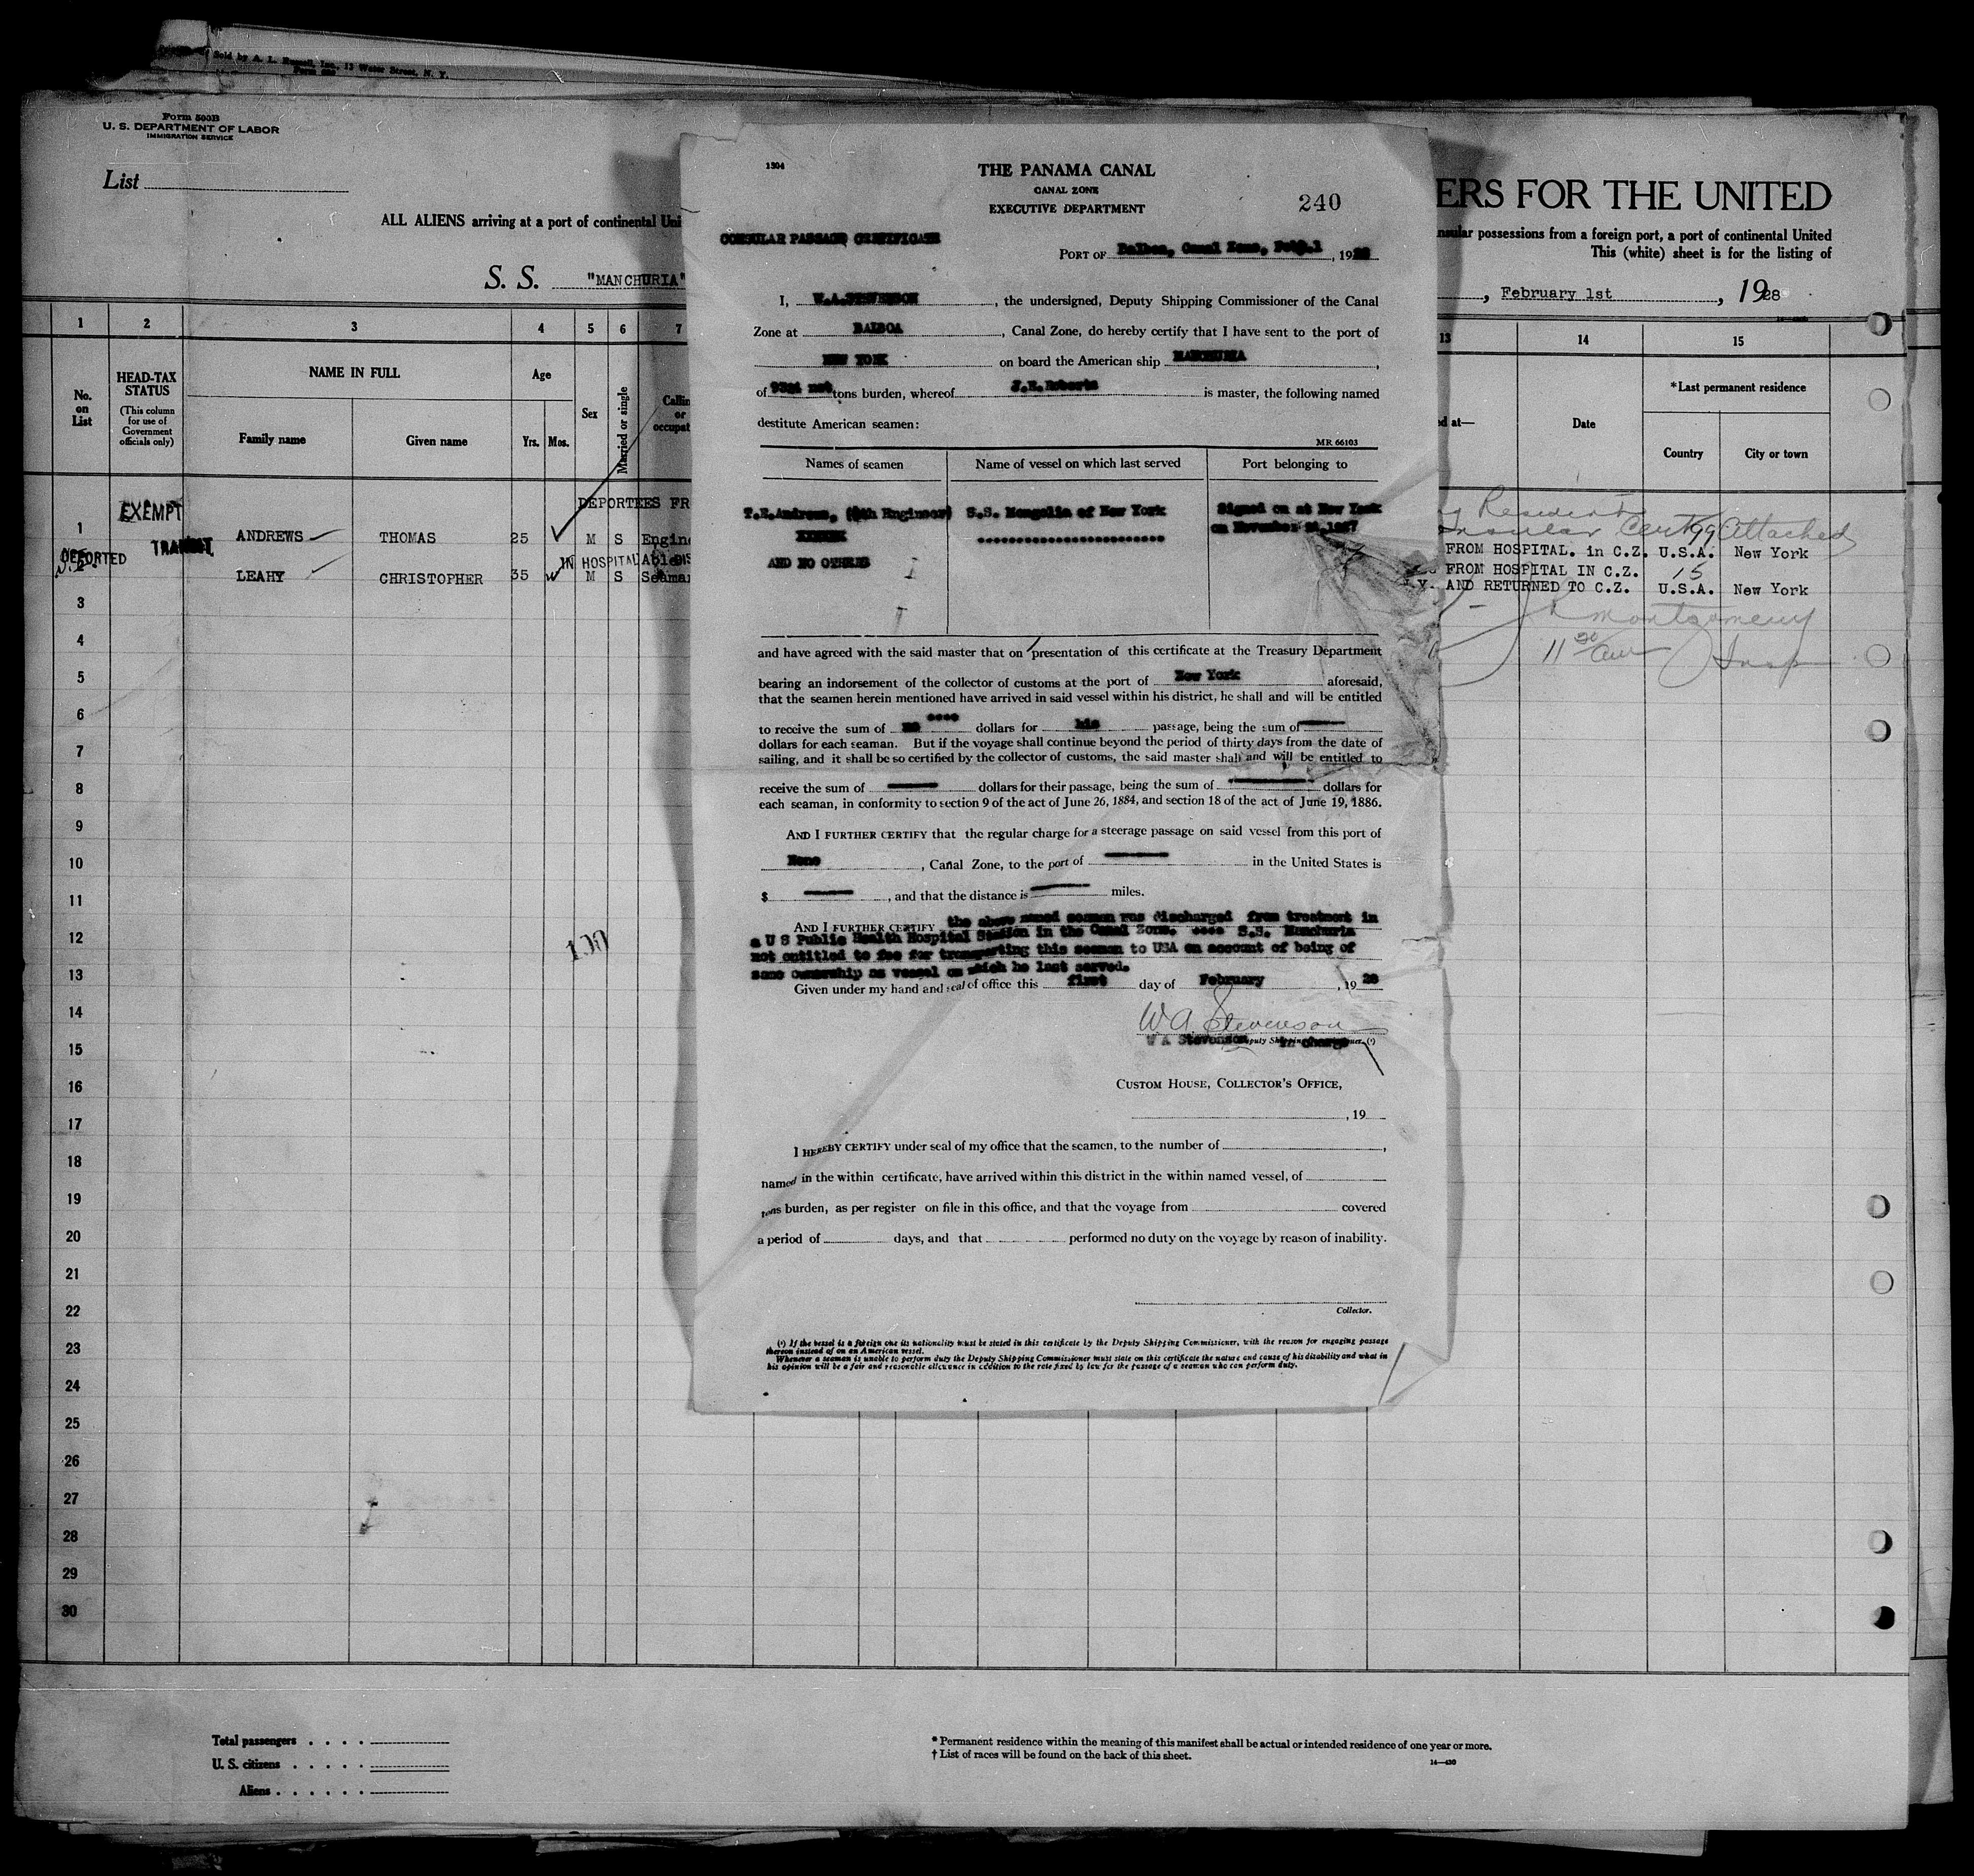 Sold by A. L. Russell, Inc., 12 Water Street, N. Y.
Form 500B
U. S. DEPARTMENT OF LABOR
IMMIGRATION SERVICE
List
ERS FOR THE UNITED
ALL ALIENS arriving at a port of continental Uni
nsular possessions from a foreign port, a port of continental United
This (white) sheet is for the listing of
S. S. "MANCHURIA"
, February 1st , 1928
1 2 3 4 5 6 7 13 14 15
No. on List
HEAD-TAX STATUS
(This column for use of Government officials only)
NAME IN FULL
Family name
Given name
Age
Yrs. Mos.
Sex
Married or single
Callin
or
occupat
ed at—
Date
*Last permanent residence
Country
City or town
DEPORTEES FR
EXEMPT
1 ANDREWS THOMAS 25 M S Engine
TRANSIT
DEPORTED
IN HOSPITAL
LEAHY CHRISTOPHER 35 M S Seaman
Resident
Cert 99 Attached
FROM HOSPITAL. in C.Z. U.S.A. New York
FROM HOSPITAL IN C.Z. 15
AND RETURNED TO C.Z. U.S.A. New York
Montgomery
11 20 am Insp
3
4
5
6
7
8
9
10
11
12
13
14
15
16
17
18
19
20
21
22
23
24
25
26
27
28
29
30
100
Total passengers . . . .
U. S. citizens . . . . .
Aliens . . . . . .
* Permanent residence within the meaning of this manifest shall be actual or intended residence of one year or more.
† List of races will be found on the back of this sheet.
14—430
1304
THE PANAMA CANAL
CANAL ZONE
EXECUTIVE DEPARTMENT
240
CONSULAR PASSAGE CERTIFICATE
PORT OF Balboa, Canal Zone, Feb.1 , 1928
I, W.A.STEVENSON , the undersigned, Deputy Shipping Commissioner of the Canal
Zone at BALBOA , Canal Zone, do hereby certify that I have sent to the port of
NEW YORK on board the American ship MANCHURIA ,
of net tons burden, whereof J.E.Roberts is master, the following named
destitute American seamen:
MR 66103
Names of seamen
Name of vessel on which last served
Port belonging to
T.E.Andrews, (4th Engineer) S.S. Mongolia of New York Signed on at New York
on November 1927
AND NO OTHERS
and have agreed with the said master that on presentation of this certificate at the Treasury Department
bearing an indorsement of the collector of customs at the port of New York aforesaid,
that the seamen herein mentioned have arrived in said vessel within his district, he shall and will be entitled
to receive the sum of no **** dollars for his passage, being the sum of
dollars for each seaman. But if the voyage shall continue beyond the period of thirty days from the date of
sailing, and it shall be so certified by the collector of customs, the said master shall and will be entitled to
receive the sum of dollars for their passage, being the sum of dollars for
each seaman, in conformity to section 9 of the act of June 26, 1884, and section 18 of the act of June 19, 1886.
AND I FURTHER CERTIFY that the regular charge for a steerage passage on said vessel from this port of
None , Canal Zone, to the port of in the United States is
$ , and that the distance is miles.
AND I FURTHER CERTIFY the above named seaman was discharged from treatment in
a U S Public Health Hospital Station in the Canal Zone. **** S.S. Manchuria
not entitled to fee for transporting this seaman to USA on account of being of
same ownership as vessel on which he last served.
Given under my hand and seal of office this first day of February , 19 28
W A Stevenson
W A Stevenson Deputy Shipping Commissioner. (¹) in charge
CUSTOM HOUSE, COLLECTOR'S OFFICE,
, 19
I HEREBY CERTIFY under seal of my office that the seamen, to the number of ,
named in the within certificate, have arrived within this district in the within named vessel, of
tons burden, as per register on file in this office, and that the voyage from covered
a period of days, and that performed no duty on the voyage by reason of inability.
Collector.
(¹) If the vessel is a foreign one its nationality must be stated in this certificate by the Deputy Shipping Commissioner, with the reason for engaging passage
thereon instead of on an American vessel.
Whenever a seaman is unable to perform duty the Deputy Shipping Commissioner must state on this certificate the nature and cause of his disability and what in
his opinion will be a fair and reasonable allowance in addition to the rate fixed by law for the passage of a seaman who can perform duty.